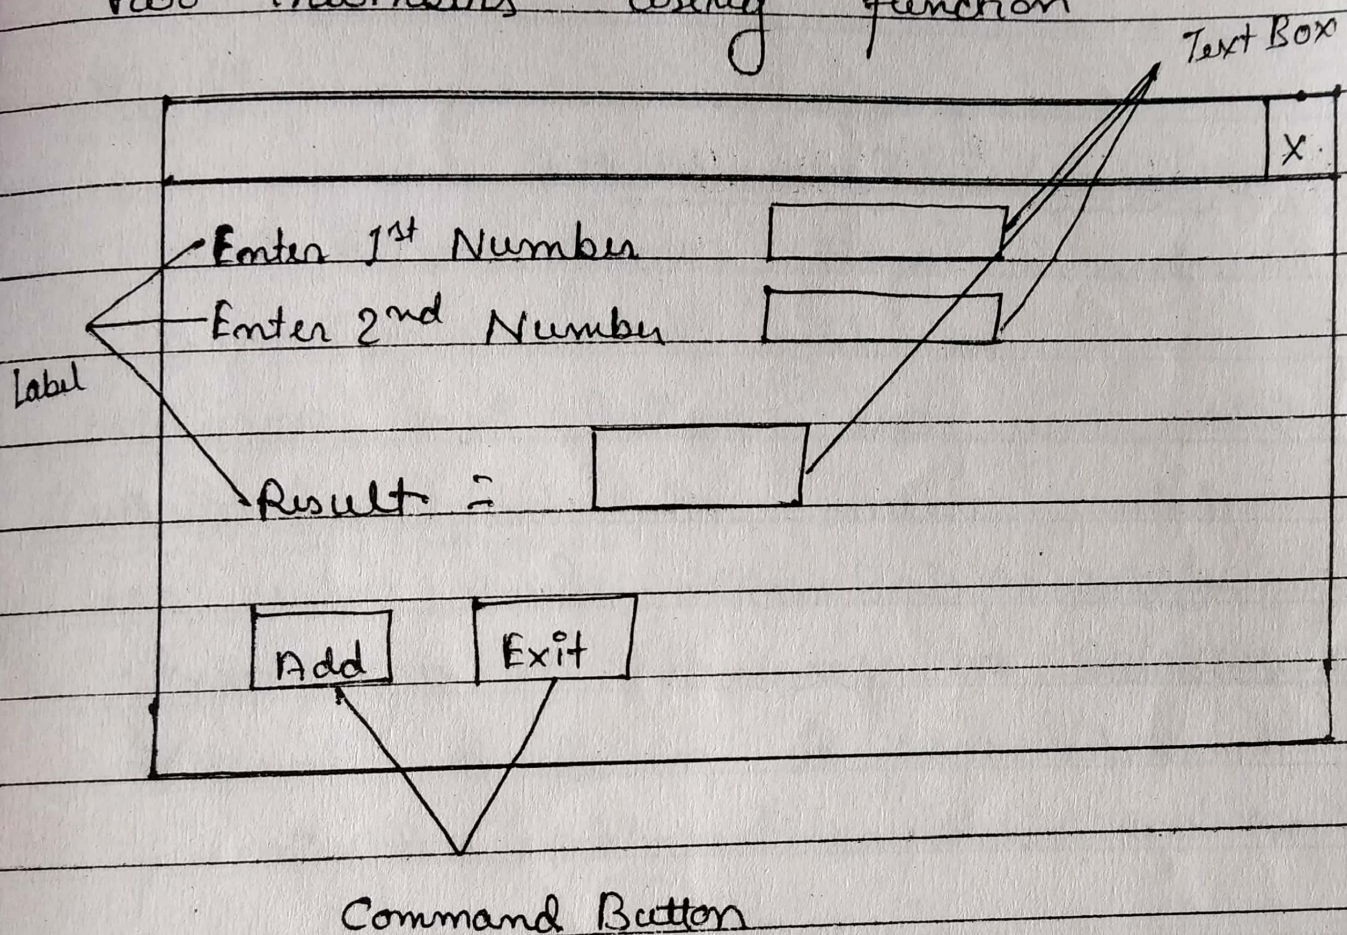 using function
Text Box
X
Enter 1st Number
Enter 2nd Number
Label
Result =
Add
Exit
Command Button